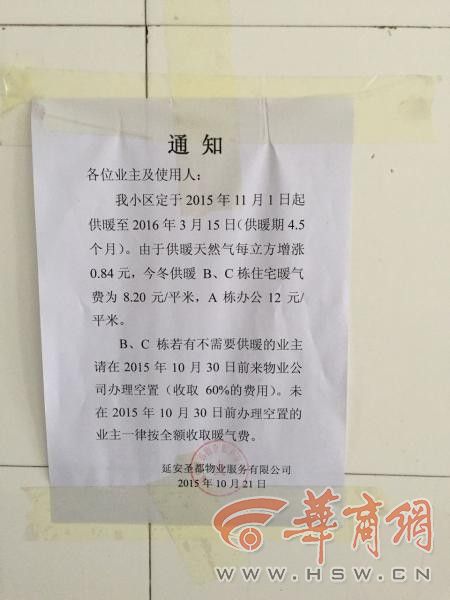 通知
各位业主及使用人：
我小区定于 2015 年 11 月 1 日起
供暖至 2016 年 3 月 15 日（供暖期 4.5
个月）。由于供暖天然气每立方增涨
0.84 元，今冬供暖 B、C 栋住宅暖气
费为 8.20 元/平米，A 栋办公 12 元/
平米。
B、C 栋若有不需要供暖的业主
请在 2015 年 10 月 30 日前来物业公
司办理空置（收取 60%的费用）。未
在 2015 年 10 月 30 日前办理空置的
业主一律按全额收取暖气费。
延安圣都物业服务有限公司
2015 年 10 月 21 日
華商網
WWW.HSW.CN